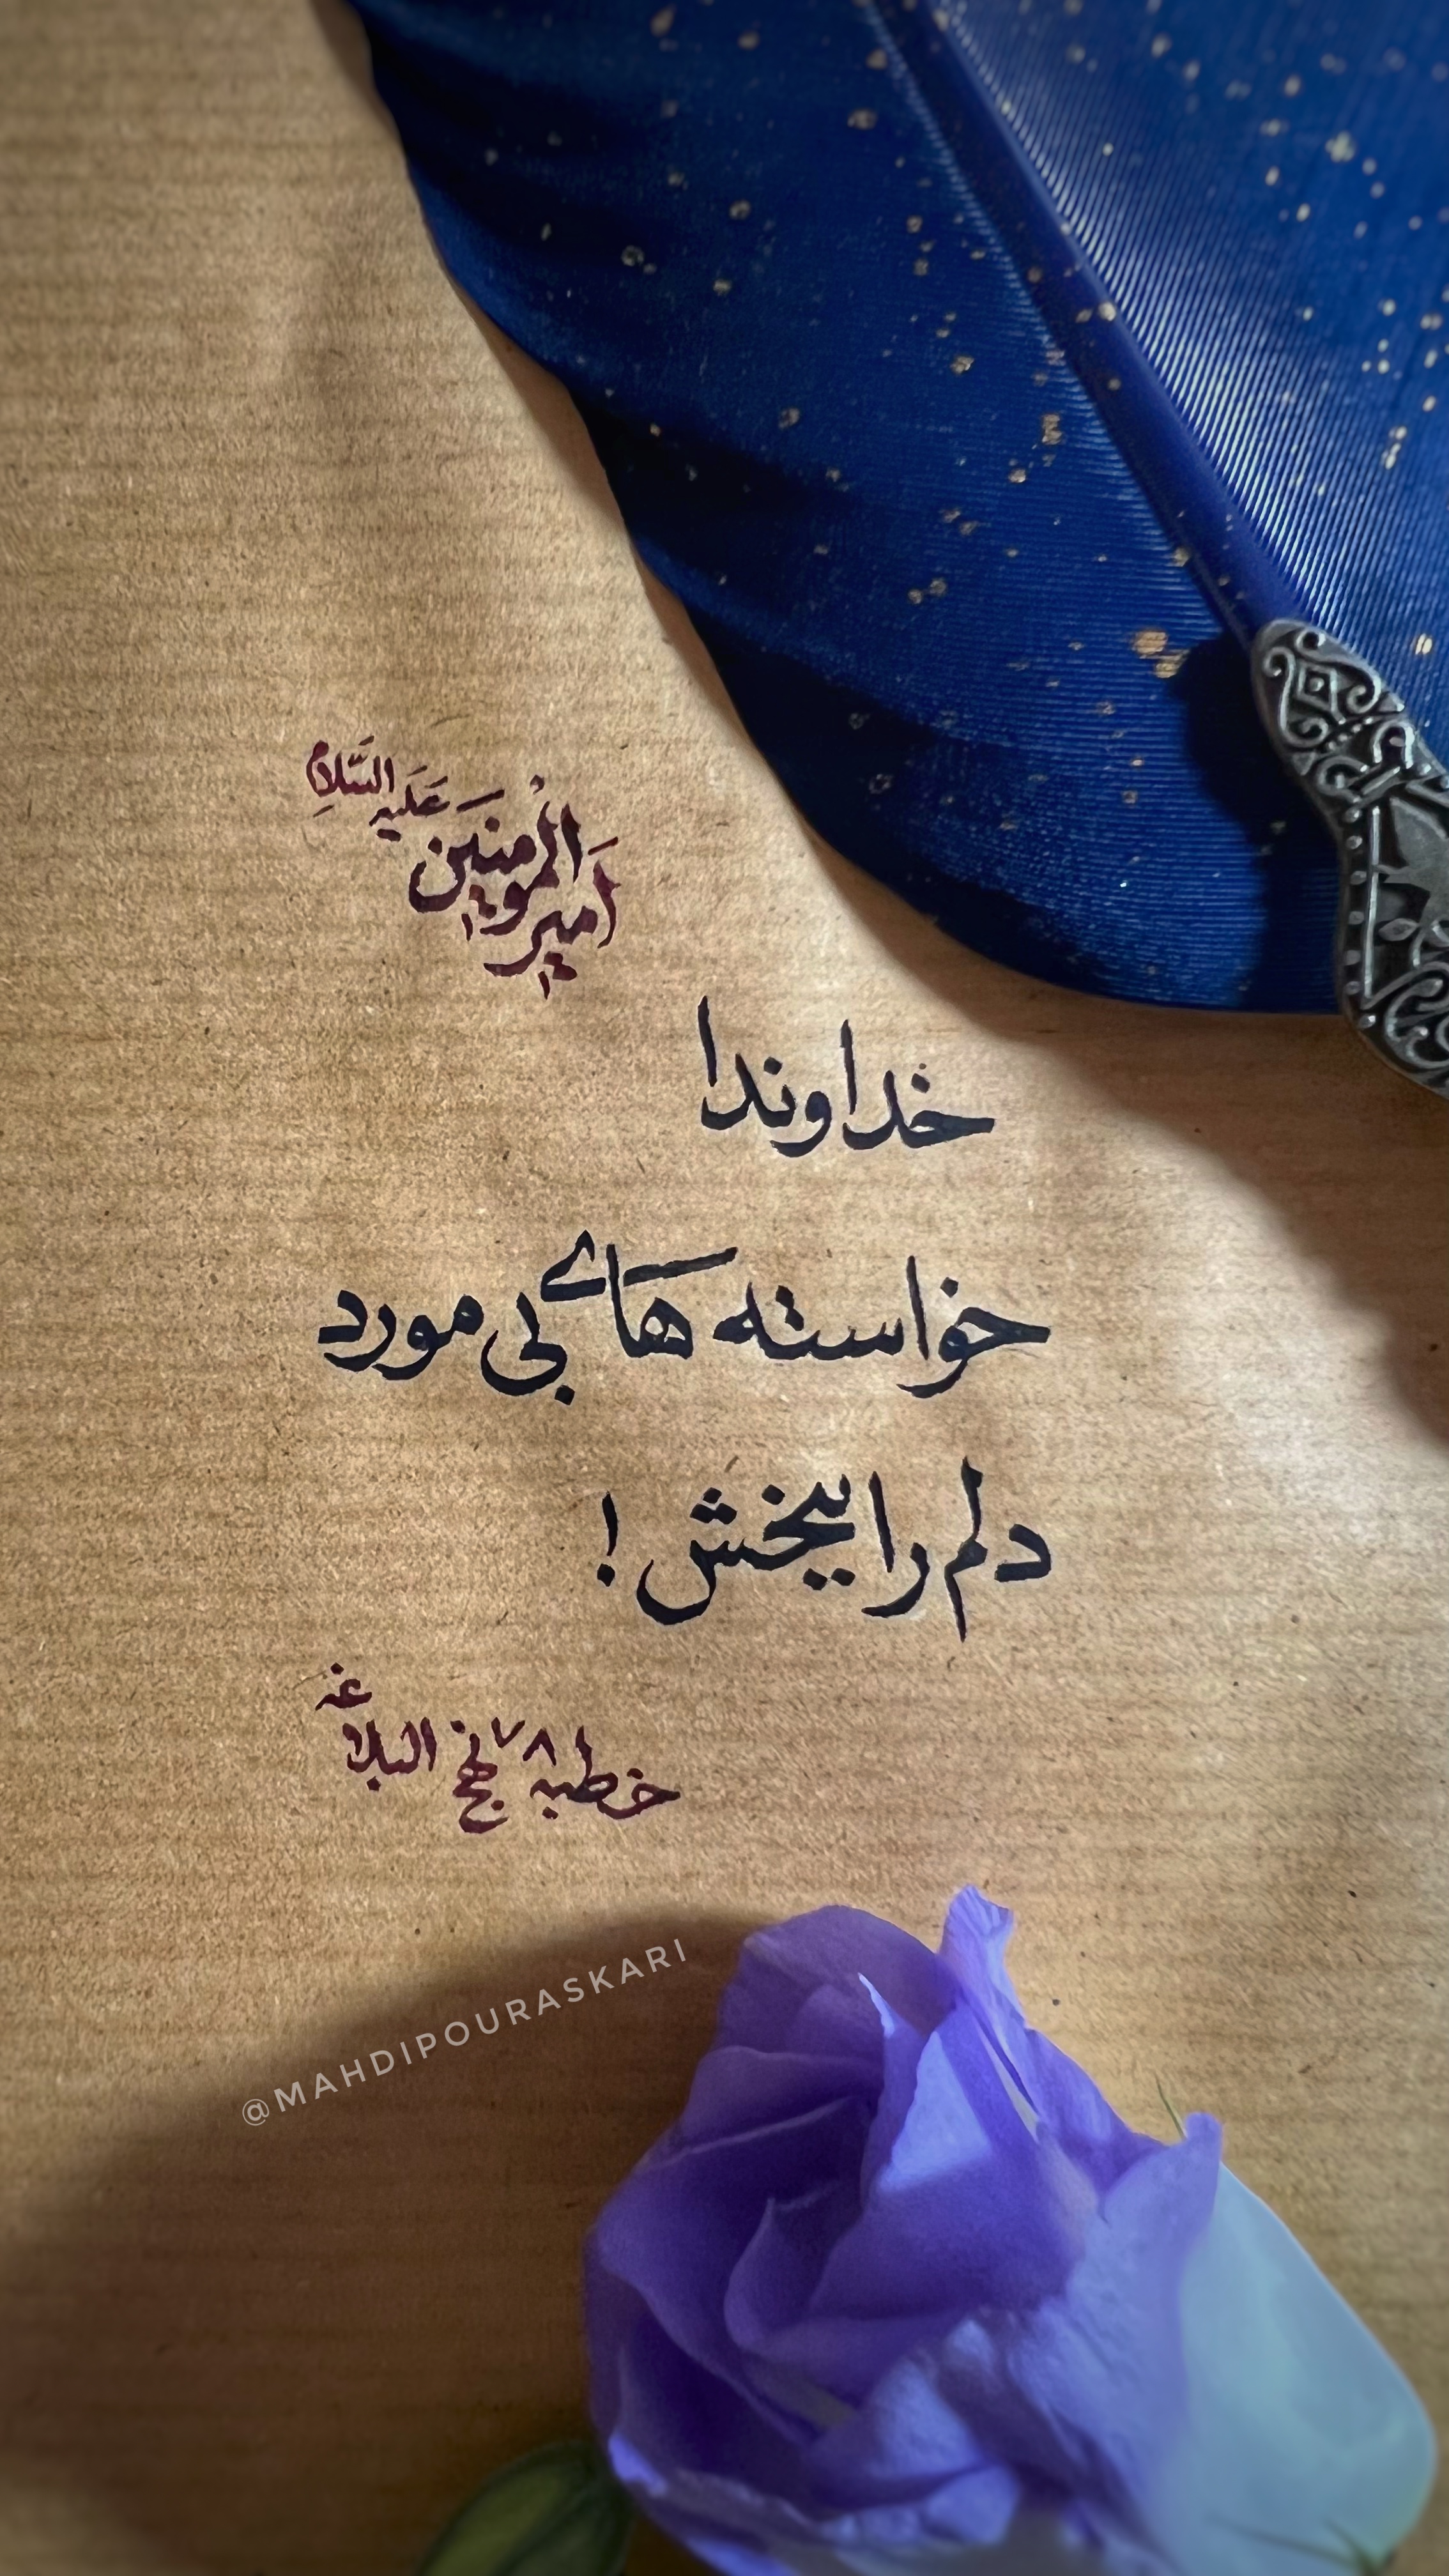 امیرالمومنین عَلَیہ السَّلام
خداوندا
خواسته هاے بی مورد
دلم را ببخش !
خطبه ۷۸ نهج البلاغه
@MAHDIPOURASKARI